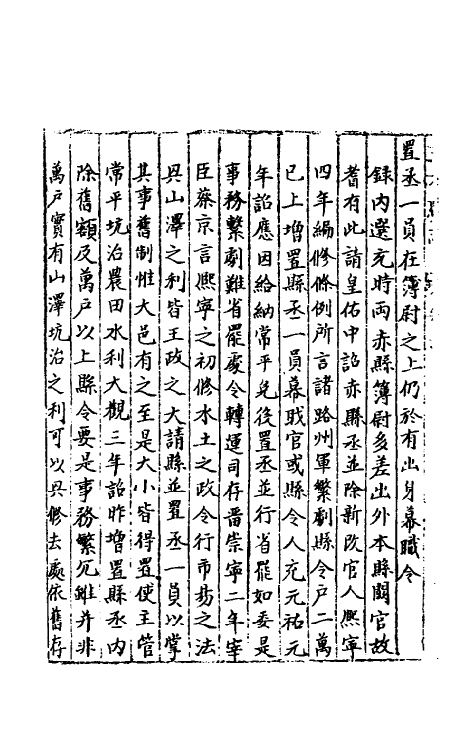 置丞一員在簿尉之上仍於有出身幕職令
録内選充時兩赤縣簿尉多差出外本縣闕官故
耆有此請皇佑中詔赤縣丞並除新改官人熙寧
四年編修條例所言諸路州軍繁劇縣令戶二萬
已上增置縣丞一員幕職官或縣令人充元祐元
年詔應因給納常平免役置丞並行省罷如委是
事務繫劇難省罷處令轉運司存畱崇寧二年宰
臣蔡京言熙寧之初修水土之政令行市易之法
興山澤之利皆王政之大請縣並置丞一員以掌
其事舊制惟大邑有之至是大小皆得置使主管
常平坑治農田水利大觀三年詔昨增置縣丞内
除舊額及萬戶以上縣令要是事務繁冗雖并非
萬戶實有山澤坑治之利可以興修去處依舊存